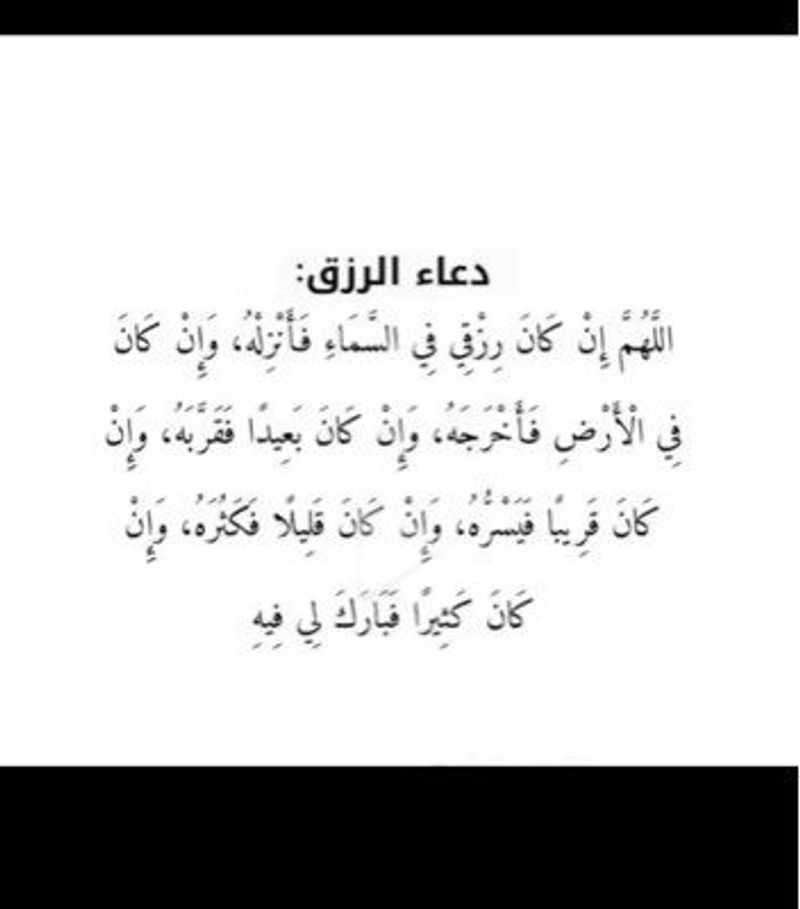 دعاء الرزق:
اللَّهُمَّ إِنْ كَانَ رِزْقِي فِي السَّمَاءِ فَأَنْزِلْهُ، وَإِنْ كَانَ
فِي الْأَرْضِ فَأَخْرَجَهُ، وَإِنْ كَانَ بَعِيدًا فَقَرَّبَهُ، وَإِنْ
كَانَ قَرِيبًا فَيَسْرُّهُ، وَإِنْ كَانَ قَلِيلًا فَكَثُرَهُ، وَإِنْ
كَانَ كَثِيرًا فَبَارَكَ لِي فِيهِ